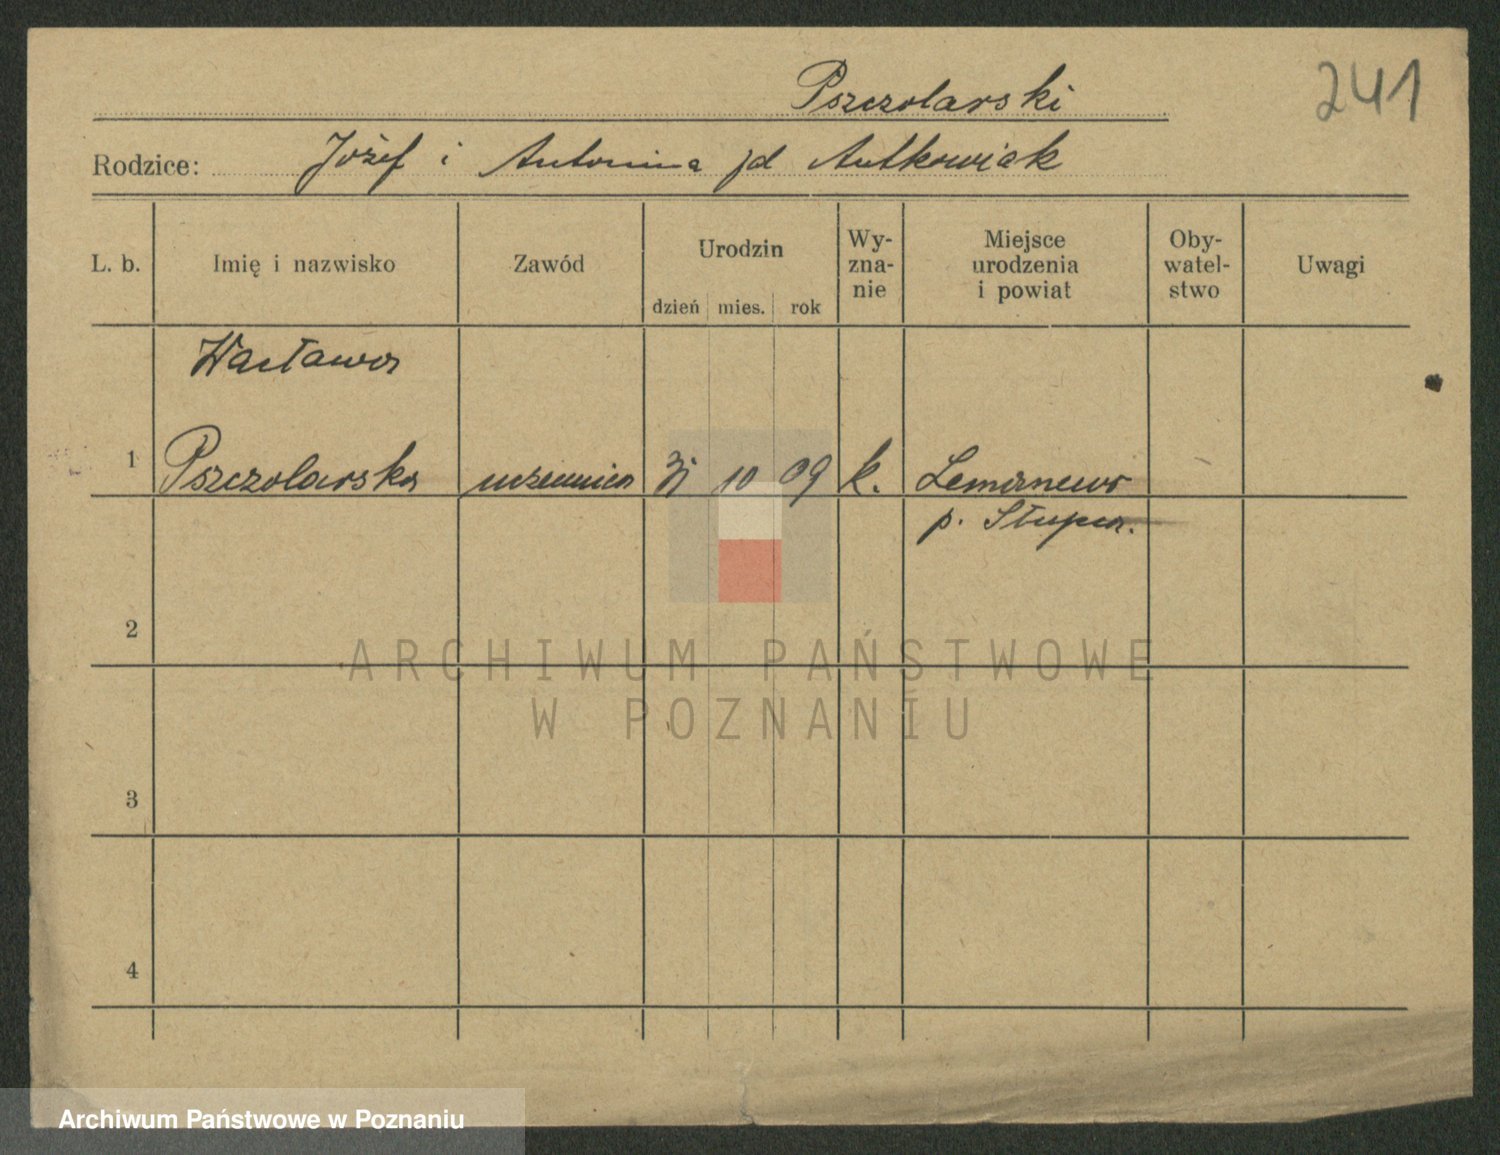 241
Pszczolarski
Rodzice: Józef i Antonina jd Antkowiak
L. b. Imię i nazwisko Zawód Urodzin dzień mies. rok Wy-zna-nie Miejsce urodzenia i powiat Oby-watel-stwo Uwagi
Wacława
1 Pszczolarska uczennica 31 10 09 k. Lemanewo
p. Słupca.
2
3
4
ARCHIWUM PAŃSTWOWE
W POZNANIU
Archiwum Państwowe w Poznaniu